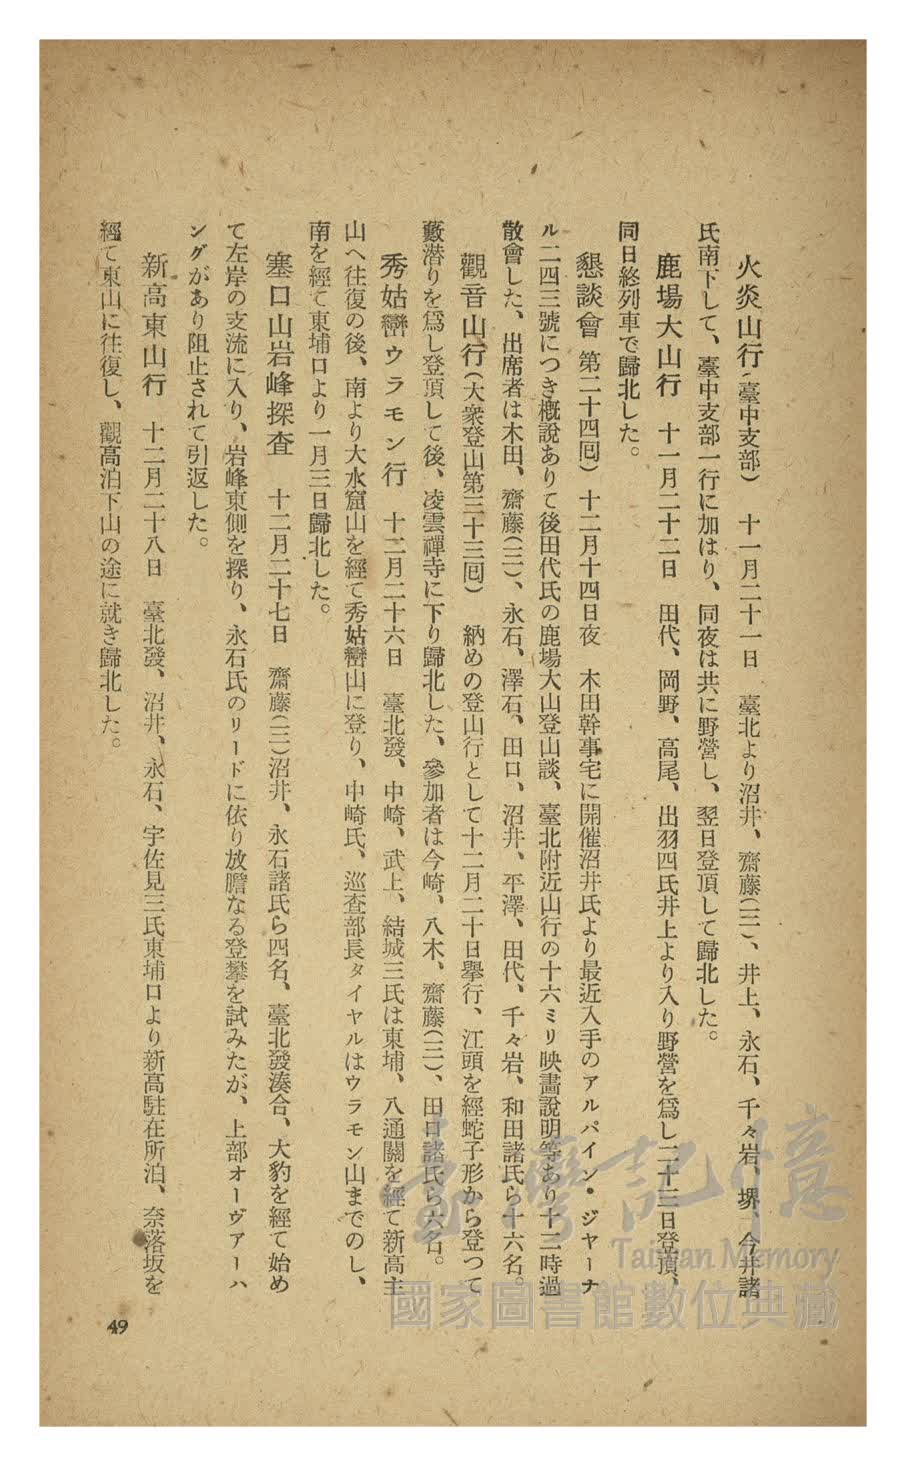 火炎山行(臺中支部) 十一月二十一日 臺北より沼井、齋藤(三)、井上、永石、千々岩、堺、今井諸
氏南下して、臺中支部一行に加はり、同夜は共に野營し、翌日登頂して歸北した。
鹿場大山行 十一月二十二日 田代、岡野、高尾、出羽四氏井上より入り野營を爲し二十三日登頂、
同日終列車で歸北した。
懇談會 第二十四囘) 十二月十四日夜 木田幹事宅に開催沼井氏より最近入手のアルパイン・ジヤーナ
ル二四三號につき概說ありて後田代氏の鹿場大山登山談、臺北附近山行の十六ミリ映畫說明等あり十二時過
散會した、出席者は木田、齋藤(三)、永石、澤石、田口、沼井、平澤、田代、千々岩、和田諸氏ら十六名。
觀音山行(大衆登山第三十三囘) 納めの登山行として十二月二十日擧行、江頭を經蛇子形から登つて
藪潛りを爲し登頂して後、凌雲禪寺に下り歸北した、參加者は今崎、八木、齋藤(三)、田口諸氏ら六名。
秀姑巒ウラモン行 十二月二十六日 臺北發、中崎、武上、結城三氏は東埔、八通關を經て新高主
山へ往復の後、南より大水窟山を經て秀姑巒山に登り、中崎氏、巡査部長タイヤルはウラモン山までのし、
南を經て東埔口より一月三日歸北した。
塞口山岩峰探査 十二月二十七日 齋藤(三)沼井、永石諸氏ら四名、臺北發湊合、大豹を經て始め
て左岸の支流に入り、岩峰東側を探り、永石氏のリードに依り放膽なる登攀を試みたが、上部オーヴアーハ
ングがあり阻止されて引返した。
新高東山行 十二月二十八日 臺北發、沼井、永石、宇佐見三氏東埔口より新高駐在所泊、奈落坂を
經て東山に往復し、觀高泊下山の途に就き歸北した。
49
臺灣記憶
Taiwan Memory
國家圖書館數位典藏